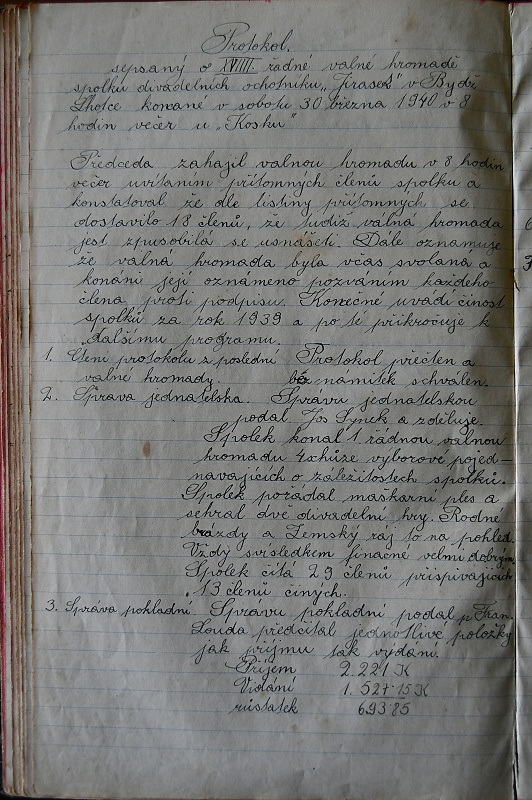 Protokol.
sepsaný o XVIII. řádné valné hromadě
spolku divadelních ochotníku „Jirasek" v Bydž
Lhotce konané v sobotu 30 března 1940 v 8
hodin večer u „Kosku"
Předceda zahajil valnou hromadu v 8 hodin
večer uvítaním přítomných členů spolku a
konstatoval že dle listiny přítomných se
dostavilo 18 členů, že tudiž válná hromada
jest zpusobilá se usnášeti. Dále oznamuje
že valná hromada byla včas svolana a
konání její oznámeno pozváním každeho
člena proti podpisu. Konečně uvadí činost
spolků za rok 1939 a po té přikročuje k
dalšímu programu.
1. Čtení protokolu z poslední Protokol přečten a
valné hromady. bez námitek schválen.
2. Správa jednatelska. Spravu jednatelskou
podal Jos Synek a zděluje.
Spolek konal 1 řádnou valnou
hromadu 4 schůze vyborové pojed-
navajících o záležitostech spolků.
Spolek pořádal maskarní ples a
sehral dvě divadelní hry. Rodné
brázdy a Zemský ráj to na pohled.
Vždy s výsledkem finačně velmi dobrým.
Spolek čítá 29 členů přispívajících
13 členů činých.
3. Správa pokladní. Spravu pokladní podal p Fran.
Louda předčítal jednotlivé položky
jak příjmu tak vydání.
Příjem 2.221 K
Vidání 1.527·15 K
zůstatek 693·85